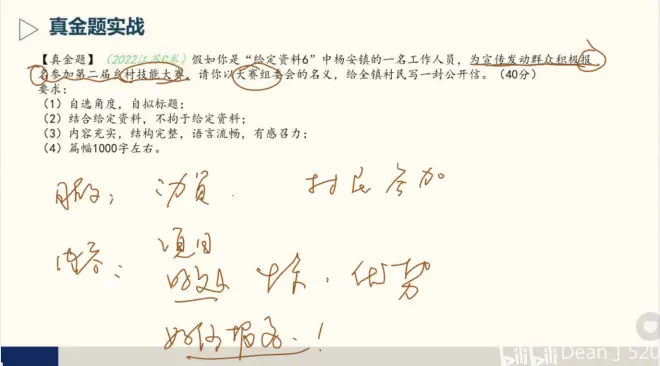 真金题实战
【真金题】(2022江苏C卷)假如你是“给定资料6”中杨安镇的一名工作人员,为宣传发动群众积极报
名参加第二届乡村技能大赛,请你以大赛组委会的名义,给全镇村民写一封公开信。(40分)
要求:
(1)自选角度,自拟标题;
(2)结合给定资料,不拘于给定资料;
(3)内容充实,结构完整,语言流畅,有感召力;
(4)篇幅1000字左右。
目的: 动员 村民参加
内容: 项目
优势
如何报名!
bilibili Dean丿520